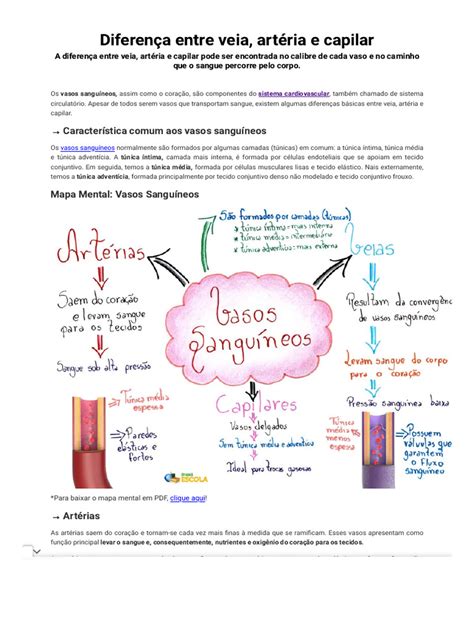 Diferença entre veia, artéria e capilar
A diferença entre veia, artéria e capilar pode ser encontrada no calibre de cada vaso e no caminho
que o sangue percorre pelo corpo.
Os vasos sanguíneos, assim como o coração, são componentes do sistema cardiovascular, também chamado de sistema
circulatório. Apesar de todos serem vasos que transportam sangue, existem algumas diferenças básicas entre veia, artéria e
capilar.
→ Característica comum aos vasos sanguíneos
Os vasos sanguíneos normalmente são formados por algumas camadas (túnicas) em comum: a túnica íntima, túnica média
e túnica adventícia. A túnica íntima, camada mais interna, é formada por células endoteliais que se apoiam em tecido
conjuntivo. Em seguida, temos a túnica média, formada por células musculares lisas e tecido elástico. Nais externamente,
temos a túnica adventícia, formada principalmente por tecido conjuntivo denso não modelado e tecido conjuntivo frouxo.
Mapa Mental: Vasos Sanguíneos
São formados por camadas (túnicas)
* túnica íntima = mais interna
* túnica média = intermediária
* túnica adventícia = mais externa
Artérias
Saem do coração
e levam sangue
para os tecidos
Sangue sob alta pressão
Túnica média
espessa
Paredes
elásticas e
fortes
Vasos
Sanguíneos
Capilares
Vasos delgados
Sem túnica média e adventícia
Ideal para trocas gasosas
BRASIL
ESCOLA
Veias
Resultam da convergência
de vasos sanguíneos
Levam sangue do corpo
para o coração
Pressão sanguínea baixa
Túnica
média
menos
espessa
Possuem
válvulas que
garantem
o fluxo
sanguíneo
*Para baixar o mapa mental em PDF, clique aqui!
→ Artérias
As artérias saem do coração e tornam-se cada vez mais finas à medida que se ramificam. Esses vasos apresentam como
função principal levar o sangue e, consequentemente, nutrientes e oxigênio do coração para os tecidos.